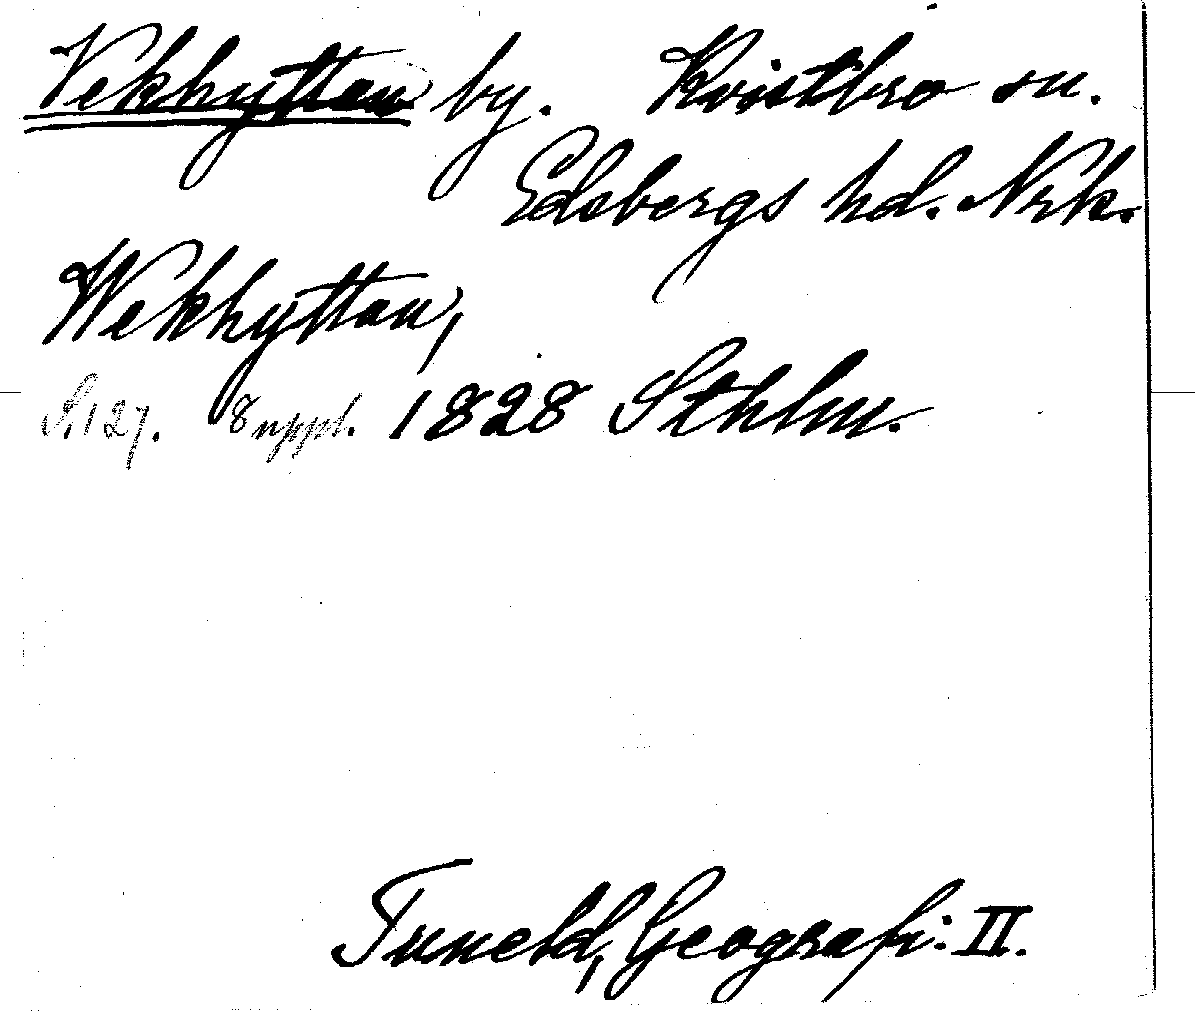 Vekhyttan by. Kvistbro sn.
Edsbergs hd. Nrk.
Wekhyttan,
S. 127. Suppl. 1828 Sthlm.
Tuneld, Geografi. II.